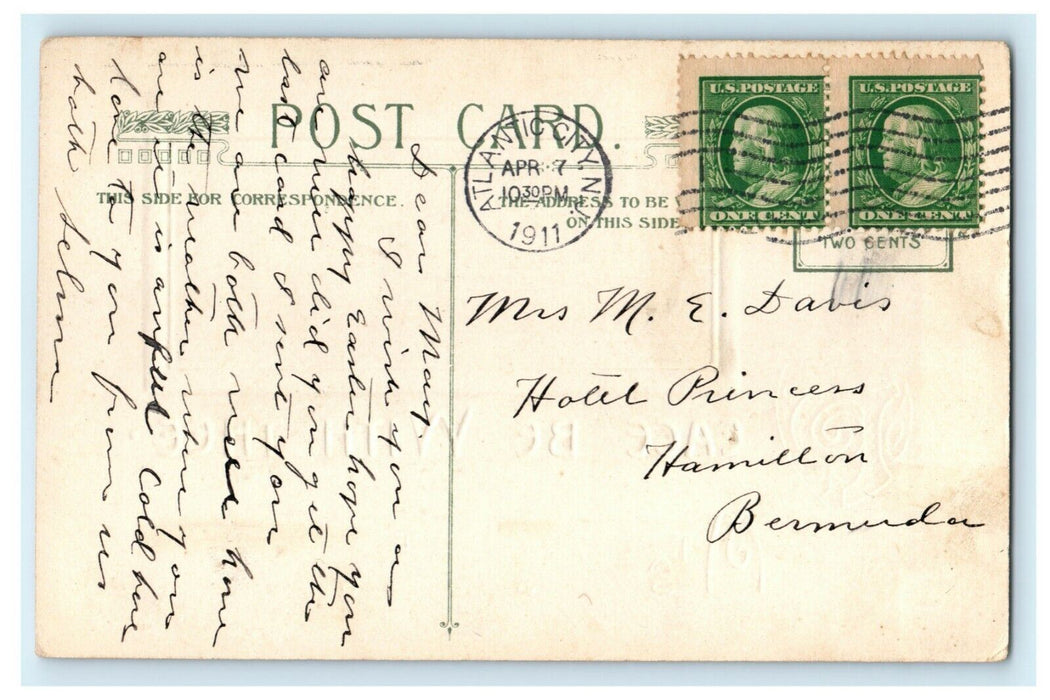 POST CARD.
THIS SIDE FOR CORRESPONDENCE.
THE ADDRESS TO BE
ON THIS SIDE
U.S. POSTAGE
ONE CENT
U.S. POSTAGE
ONE CENT
TWO CENTS
ATLANTIC CITY, N.J.
APR 7
10 30 PM
1911
Mrs M. E. Davis
Hotel Princess
Hamilton
Bermuda
Dear May.
I wish you a
happy Easter hope you
are well did you get the
last card I sent you
we are both well how
is the weather where you
are it is awful cold here
love to you from us
both Selma
PEACE BE WITH THEE